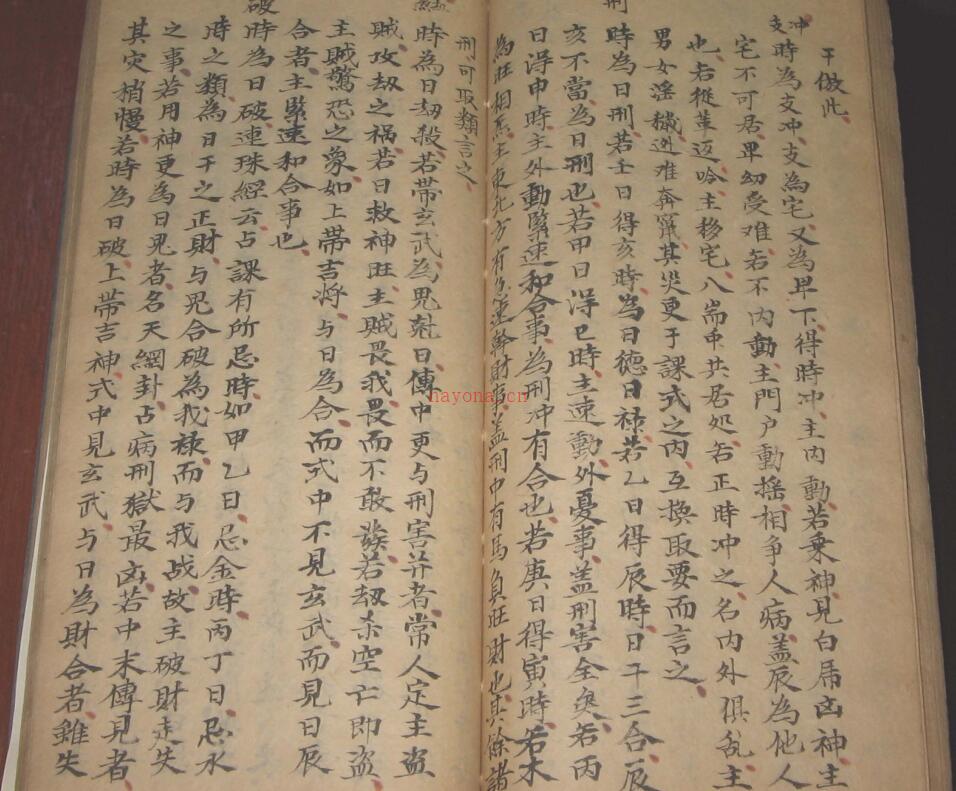 刑
干倣此
冲支
時為支冲支為宅又為卑下得時冲主内動若乗神見白虎凶神主
宅不可居卑幼受难若不内動主門户動摇相争人病盖辰為他人
也若從革返吟主移宅八耑中共居処若正時冲之名内外俱乱主
男女淫穢迯难奔竄其災更于課式之内互換取要而言之
時為日刑若壬日得亥時為日德日禄若乙日得辰時日干三合辰
亥不當為日刑也若甲日淂巳時主速動外憂事盖刑害全矣若丙
日淂申時主外動緊速和合事為刑冲有合也若庚日得寅時若木
為旺相氣主東北方有急速幹財事盖刑中有馬負旺財也其餘諸
刑可取類言之
時為日刼殺若帶玄武為鬼尅日傳中更与刑害并者常人定主盗
賊攻刼之禍若日救神旺主賊畏我畏而不敢發若刼杀空亡即盗
主賊驚恐之象如上帶吉將与日為合而式中不見玄武而見日辰
合者主緊速和合事也
破
時為日破連珠經云占課有所忌時如甲乙日忌金時丙丁日忌水
時之類為日干之正財与鬼合破為我禄而与我战故主破財走失
之事若用神更為日鬼者名天網卦占病刑獄最凶若中末傳見者
其灾稍慢若時為日破上帶吉神式中見玄武与日為財合者雖失
hayona.cn